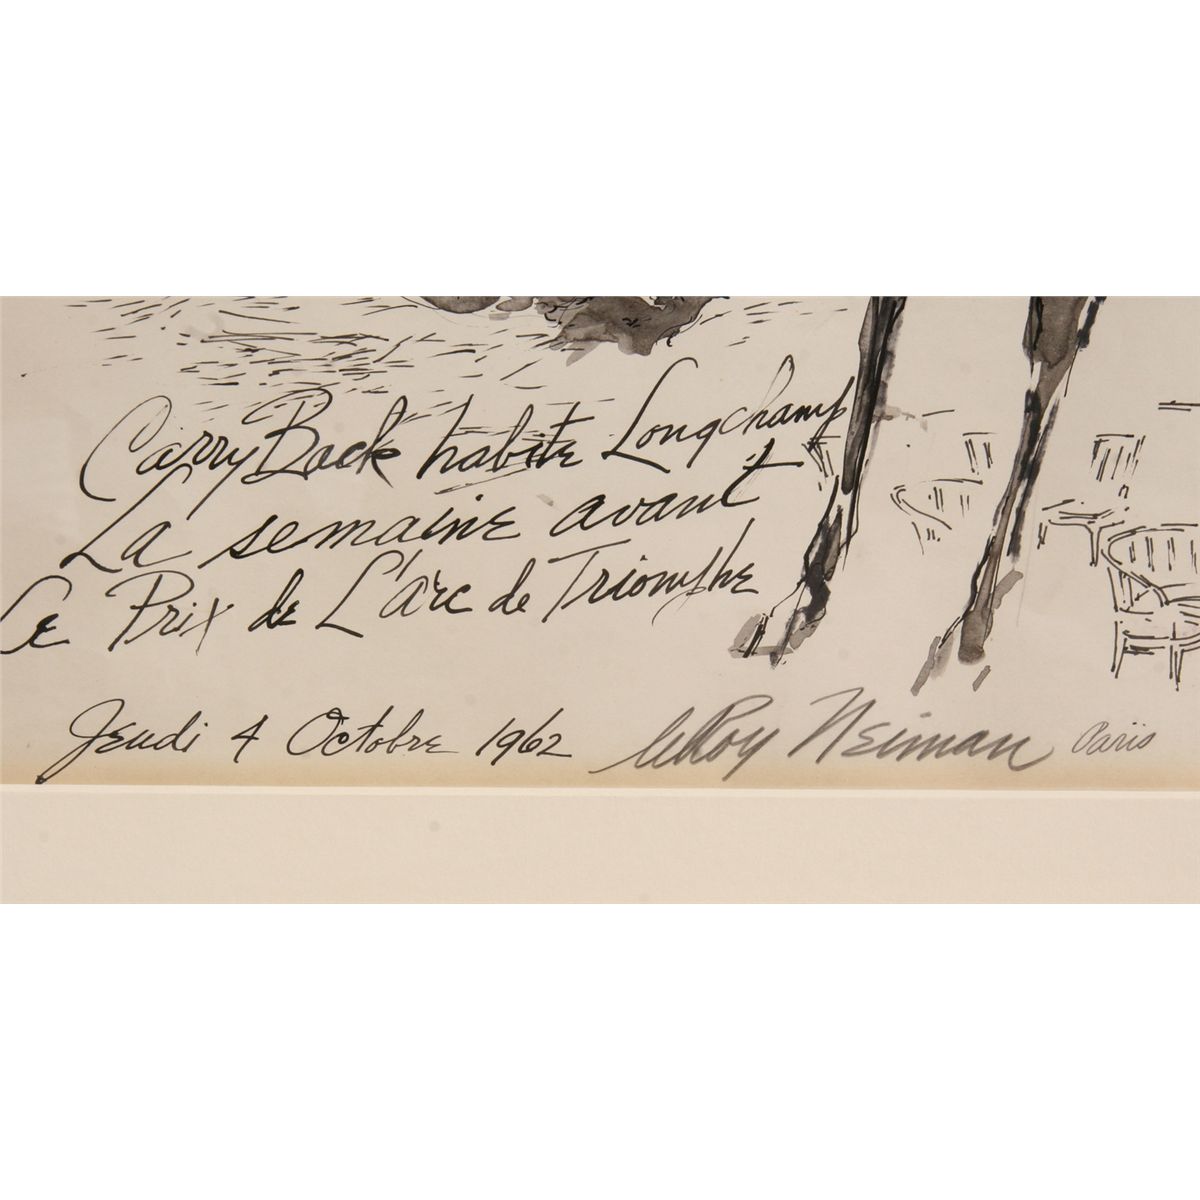 Carry Back habite Longchamp
La semaine avant
Le Prix de L'arc de Triomphe
Jeudi 4 Octobre 1962 LeRoy Neiman Paris